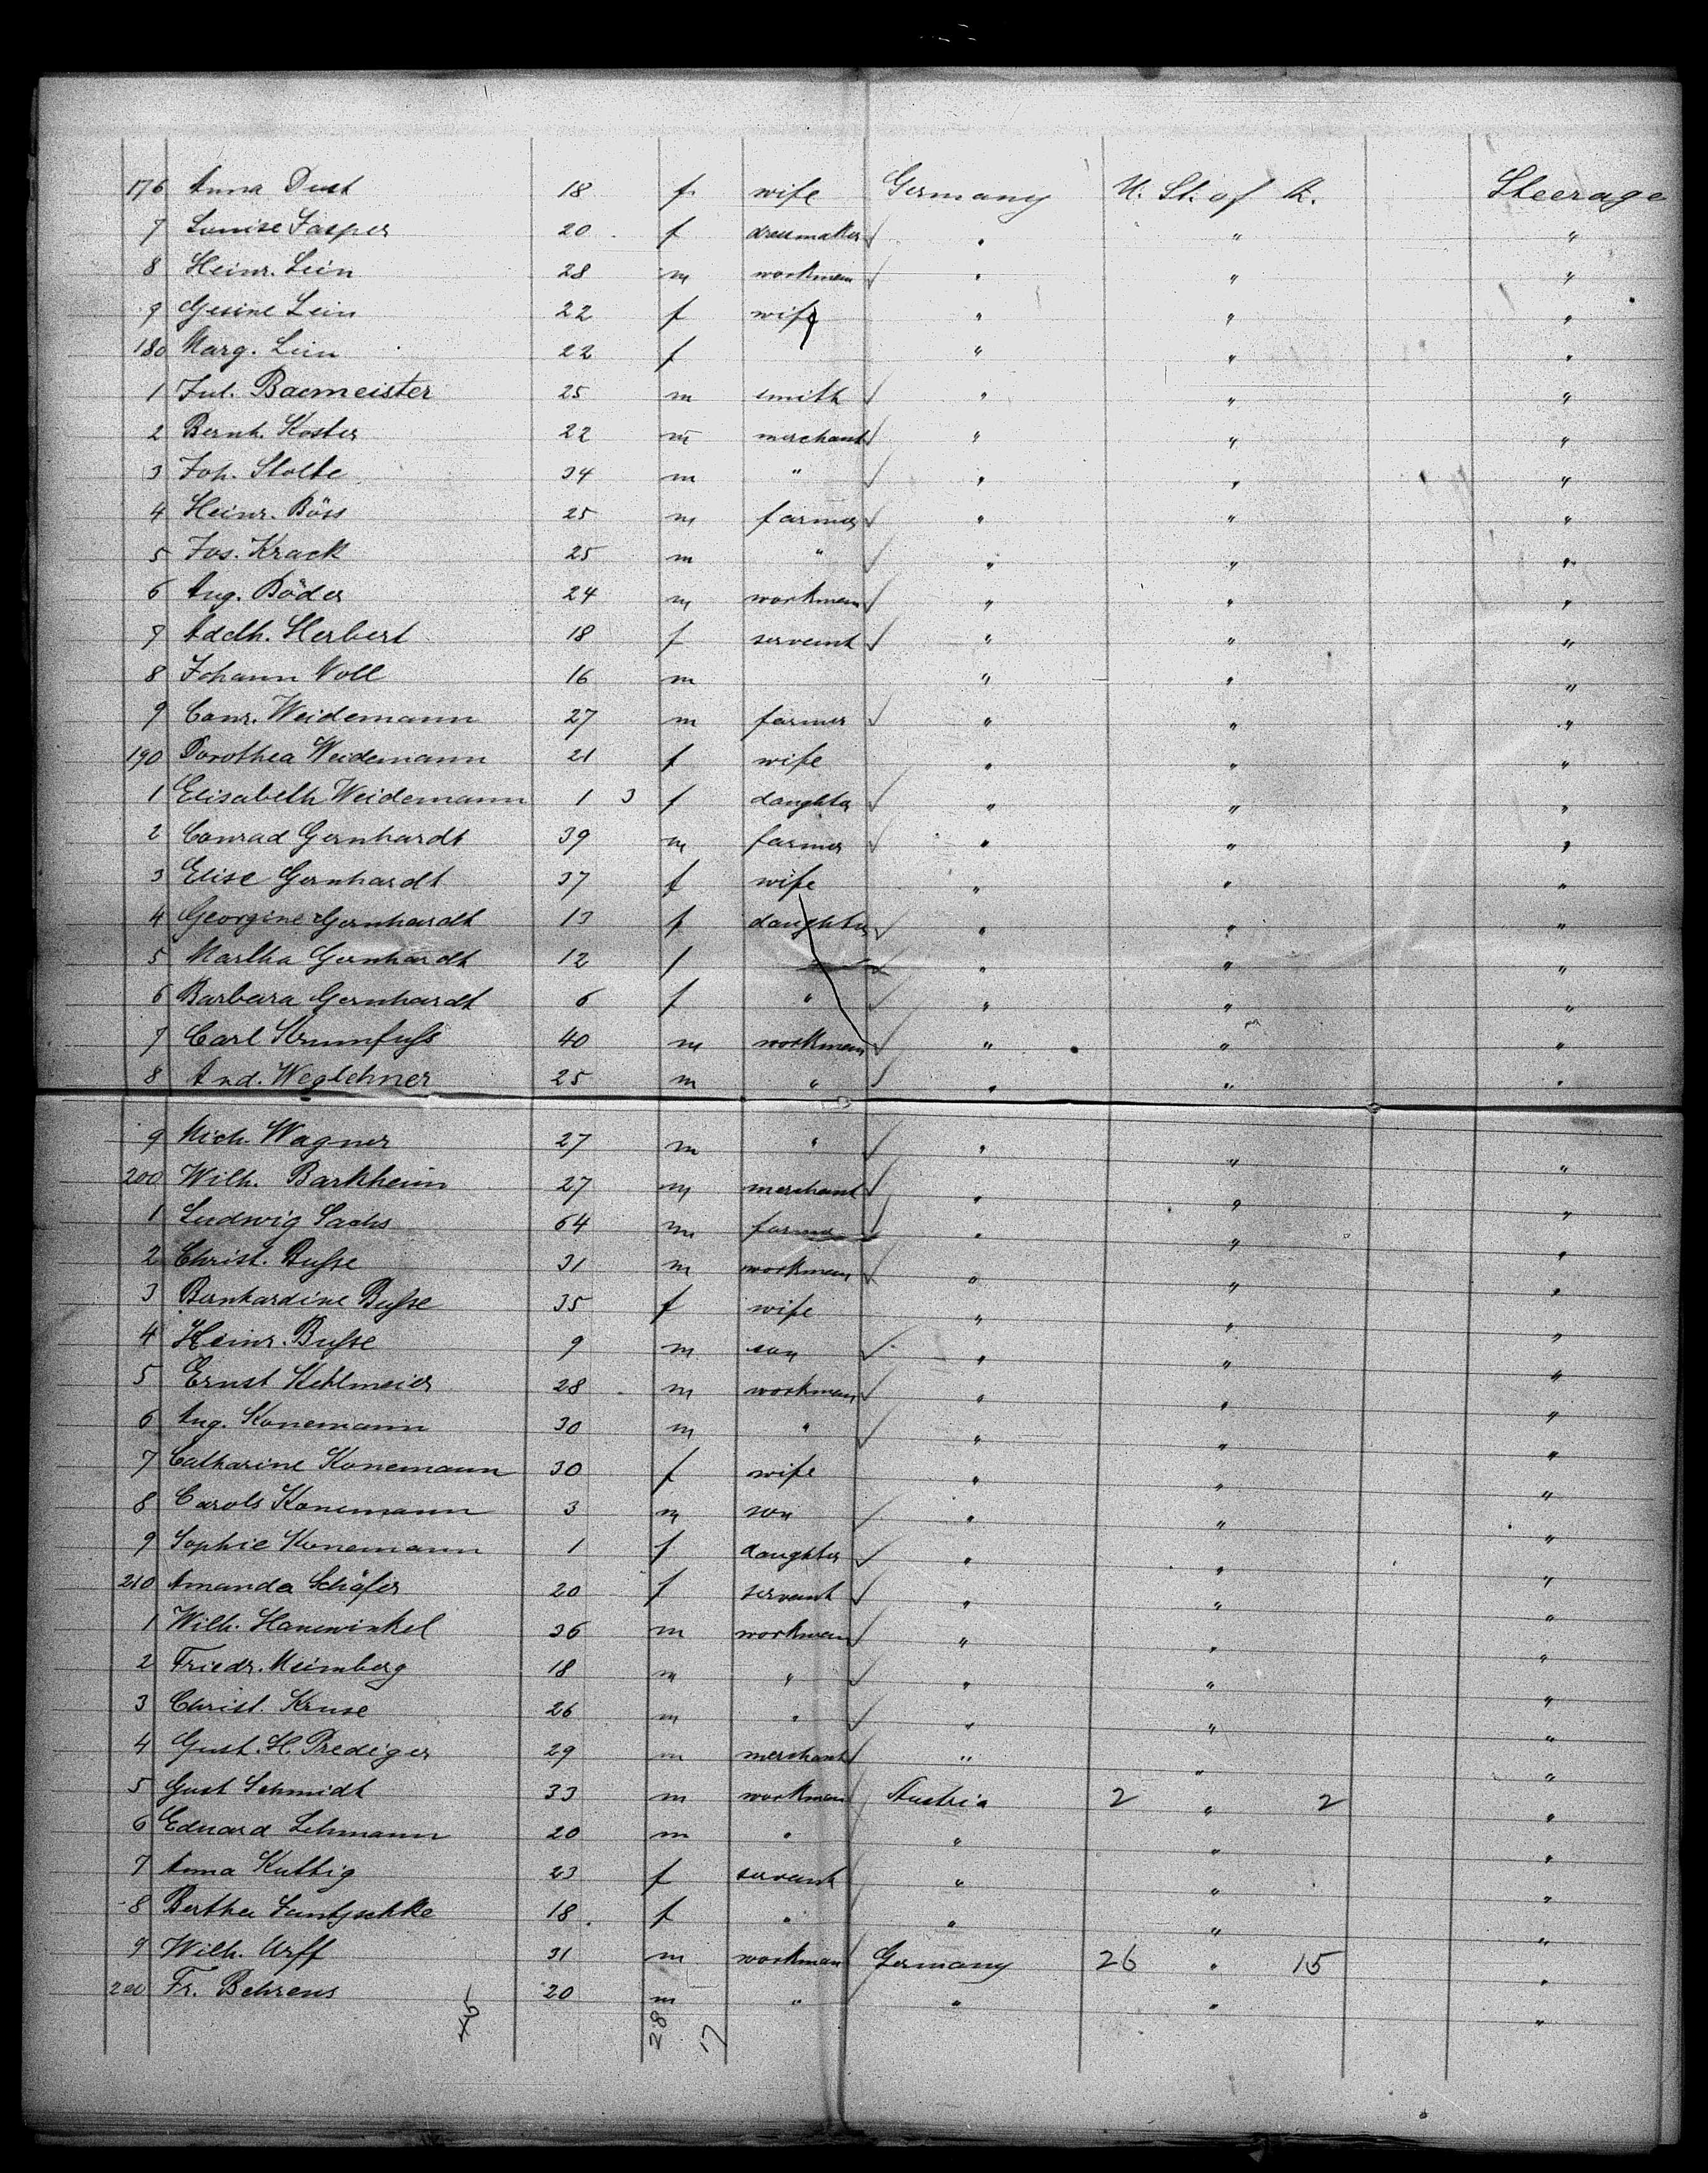 176 Anna Dust 18 f. wife Germany U. St. of A. Steerage
7 Louise Jasper 20 f dressmaker " " "
8 Heinr. Lein 28 m workman " " "
9 Gesine Lein 22 f wife " " "
180 Marg. Lein 22 f " " "
1 Jul. Bacmeister 25 m smith " " "
2 Bernh. Koster 22 m merchant " " "
3 Joh. Stolte 34 m " " " "
4 Heinr. Böss 25 m farmer " " "
5 Jos. Krack 25 m " " " "
6 Aug. Böder 24 m workman " " "
7 Adelh. Herbert 18 f servant " " "
8 Johann Noll 16 m " " "
9 Conr. Weidemann 27 m farmer " " "
190 Dorothea Weidemann 21 f wife " " "
1 Elisabeth Weidemann 1 3 f daughter " " "
2 Conrad Gernhardt 39 m farmer " " "
3 Elise Gernhardt 37 f wife " " "
4 Georgine Gernhardt 13 f daughter " " "
5 Martha Gernhardt 12 f " " " "
6 Barbara Gernhardt 6 f " " " "
7 Carl Krumfuß 40 m workman " " "
8 And. Weglehner 25 m " " " "
9 Mich. Wagner 27 m " " " "
200 Wilh. Barkheim 27 m merchant " " "
1 Ludwig Sachs 64 m farmer " " "
2 Christ. Buße 31 m workman " " "
3 Bernhardine Buße 35 f wife " " "
4 Heinr. Buße 9 m son " " "
5 Ernst Kehlmeier 28 m workman " " "
6 Aug. Konemann 30 m " " " "
7 Catharine Konemann 30 f wife " " "
8 Carols Konemann 3 m son " " "
9 Sophie Konemann 1 f daughter " " "
210 Amanda Schäfer 20 f servant " " "
1 Wilh. Hanewinkel 36 m workman " " "
2 Friedr. Meimberg 18 m " " " "
3 Christ. Kruse 26 m " " " "
4 Gust. H. Prediger 29 m merchant " " "
5 Gust Schmidt 33 m workman Austria 2 " 2 "
6 Eduard Lehmann 20 m " " " "
7 Anna Kuttig 23 f servant " " "
8 Bertha 18 f " " " "
9 Wilh. Urff 31 m workman Germany 26 " 15 "
Fr. Behrens 20 m " " " "
45 28 17